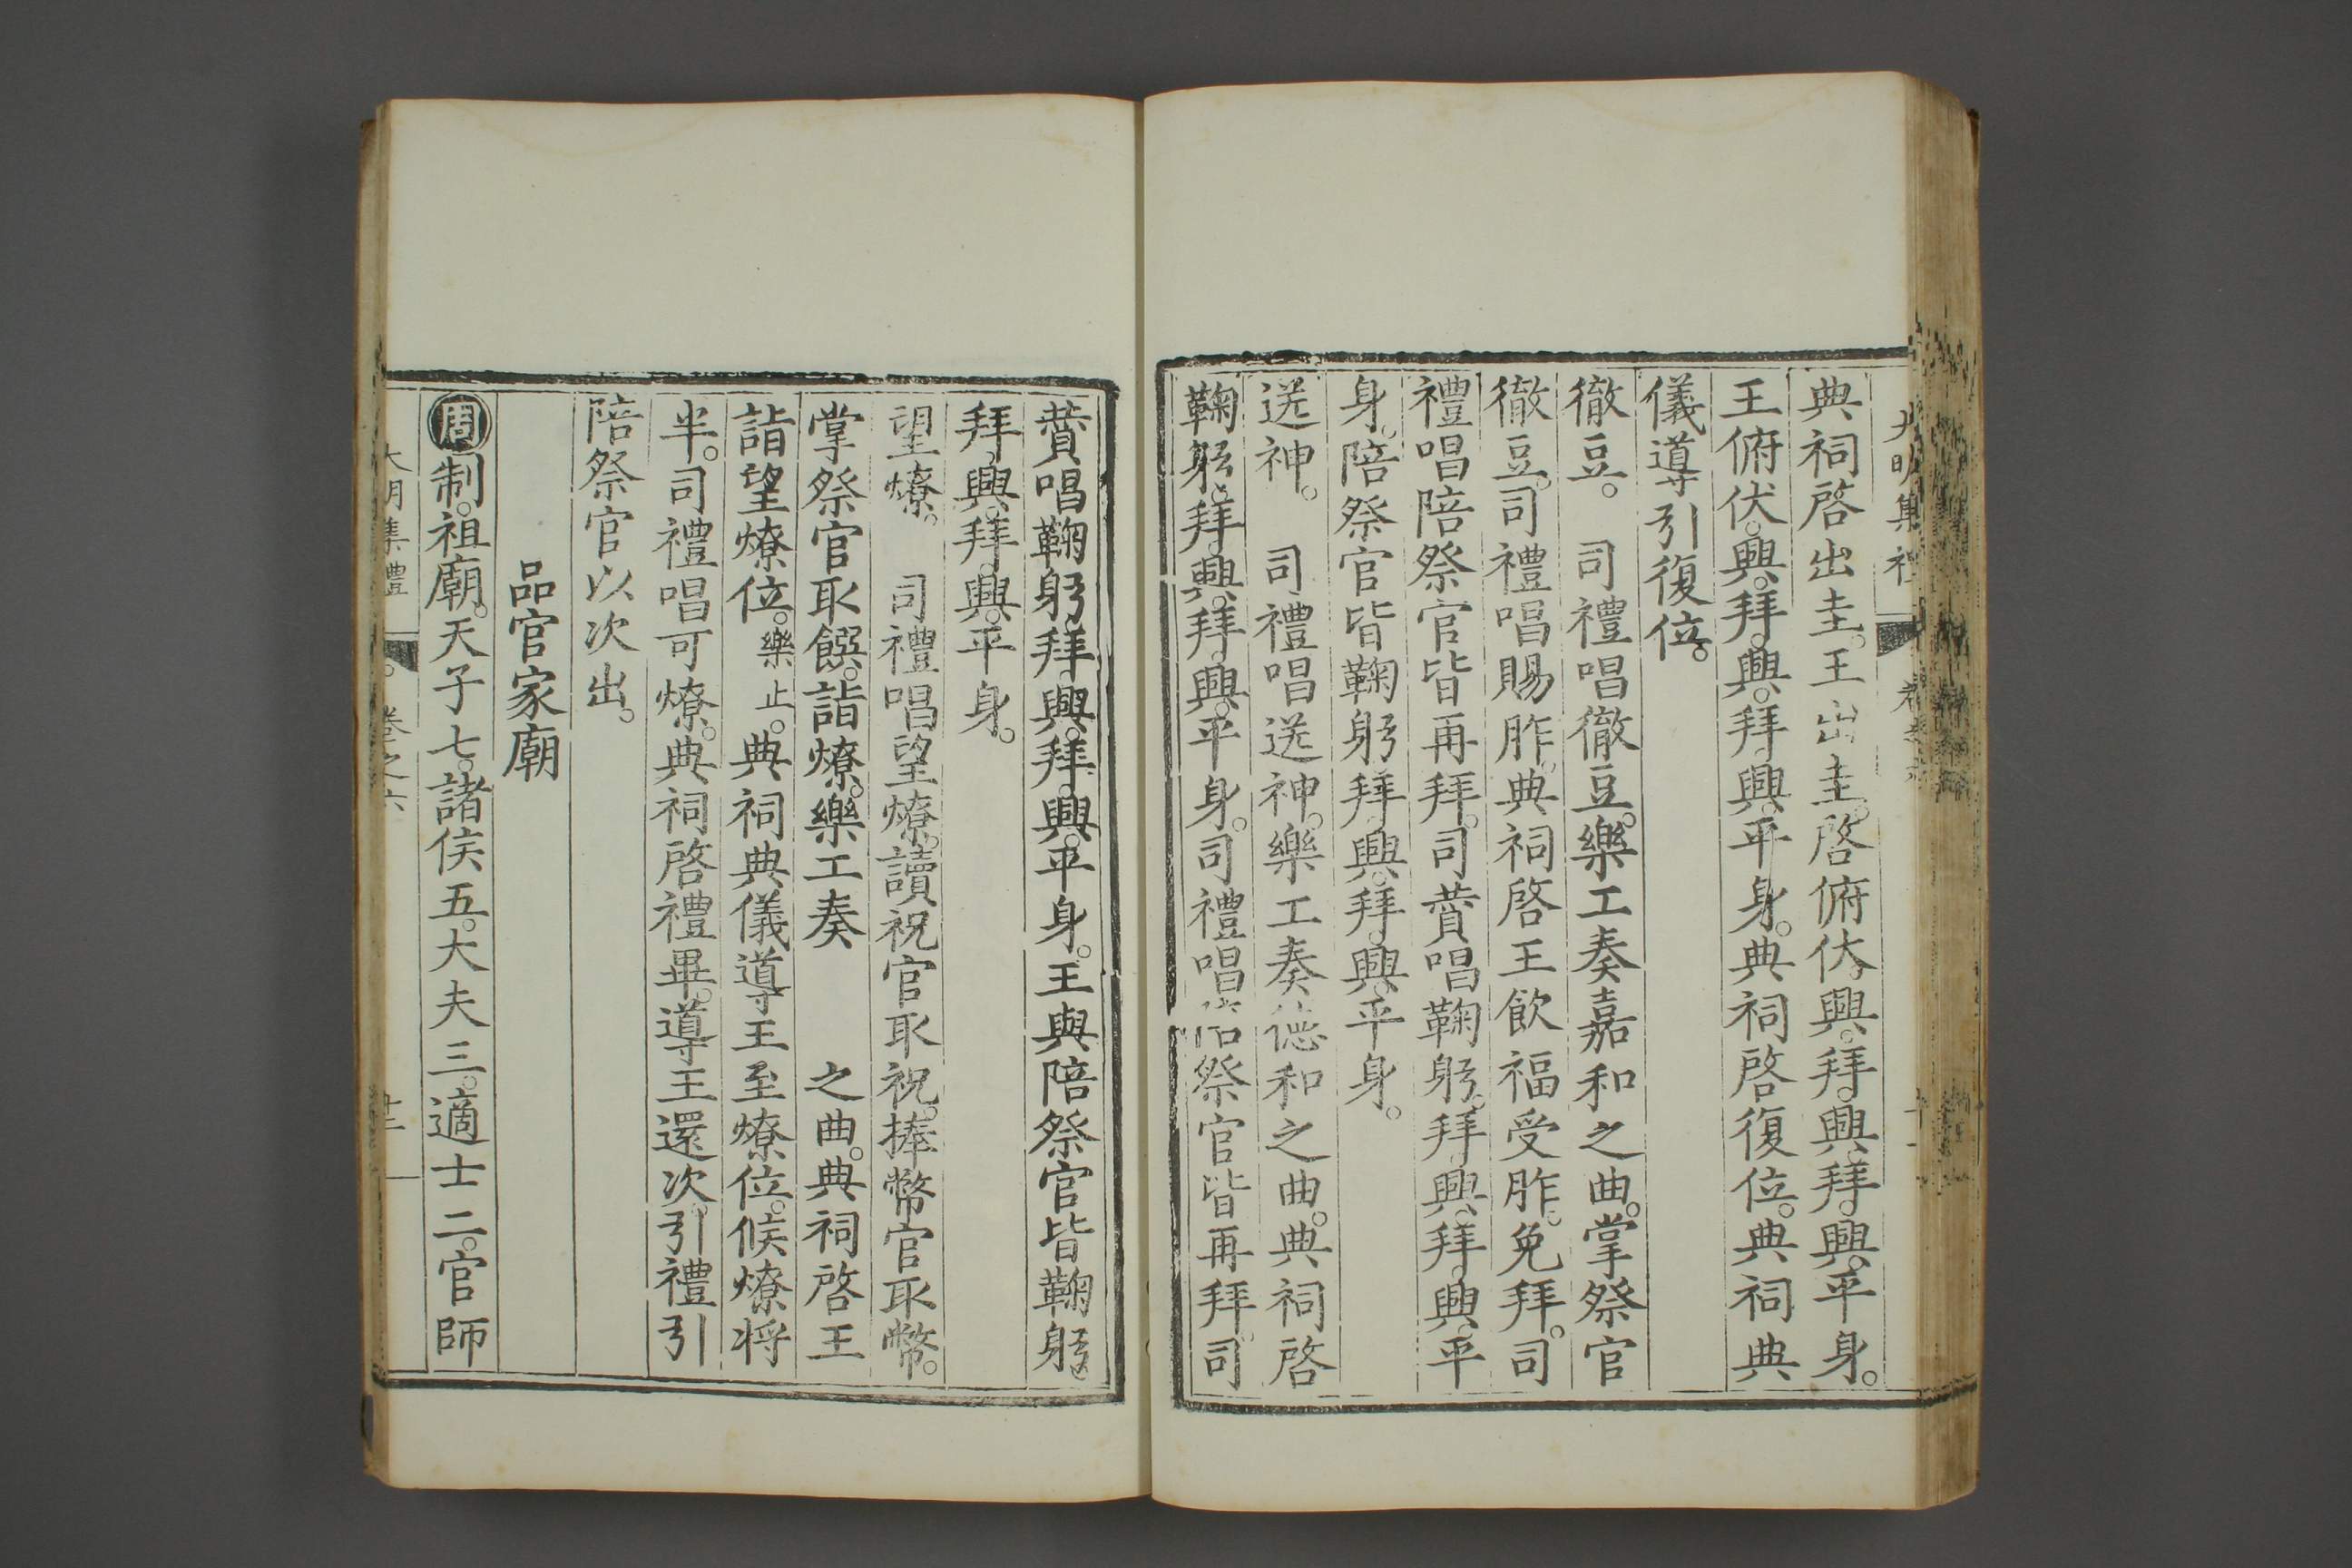 典祠啓出圭。王出圭。啓俯伏。興。拜。興。拜。興。平身。
王俯伏。興。拜。興。拜。興。平身。典祠啓復位。典祠典
儀導引復位。
徹豆。　司禮唱徹豆。樂工奏嘉和之曲。掌祭官
徹豆。司禮唱賜胙。典祠啓王飲福受胙。免拜。司
禮唱陪祭官皆再拜。司賛唱鞠躬。拜。興。拜。興。平
身。陪祭官皆鞠躬。拜。興。拜。興。平身。
送神。　司禮唱送神。樂工奏德和之曲。典祠啓
鞠躬。拜。興。拜。興。平身。司禮唱陪祭官皆再拜。司
賛唱鞠躬。拜。興。拜。興。平身。王與陪祭官皆鞠躬。
拜。興。拜。興。平身。
望燎。　司禮唱望燎。讀祝官取祝。捧幣官取幣。
掌祭官取饌。詣燎。樂工奏　　之曲。典祠啓王
詣望燎位。樂止。典祠典儀導王至燎位。候燎将
半。司禮唱可燎。典祠啓禮畢。導王還次。引禮引
陪祭官以次出。
品官家廟
周制。祖廟。天子七。諸侯五。大夫三。適士二。官師
大明集禮　卷之六